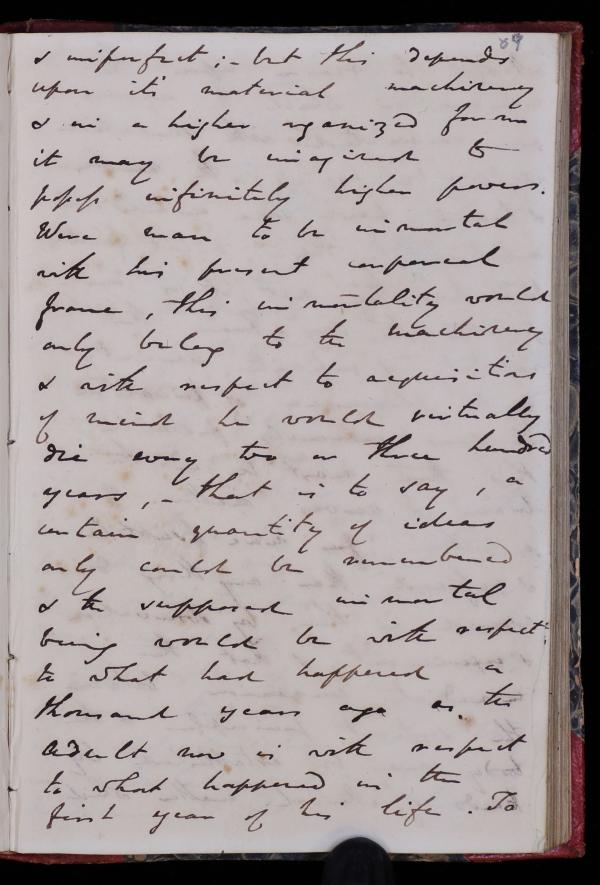 69
& imperfect; - but this depends
upon its material machinery
& in a higher organized form
it may be imagined to
possess infinitely higher powers.
Were man to be immortal
with his present corporeal
frame, this immortality would
only belong to the machinery
& with respect to acquisitions
of mind he would virtually
die every two or three hundred
years, - that is to say, a
certain quantity of ideas
only could be remembered
& the supposed immortal
being would be with respect
to what had happened a
thousand years ago as the
adult now is with respect
to what happened in the
first year of his life. To